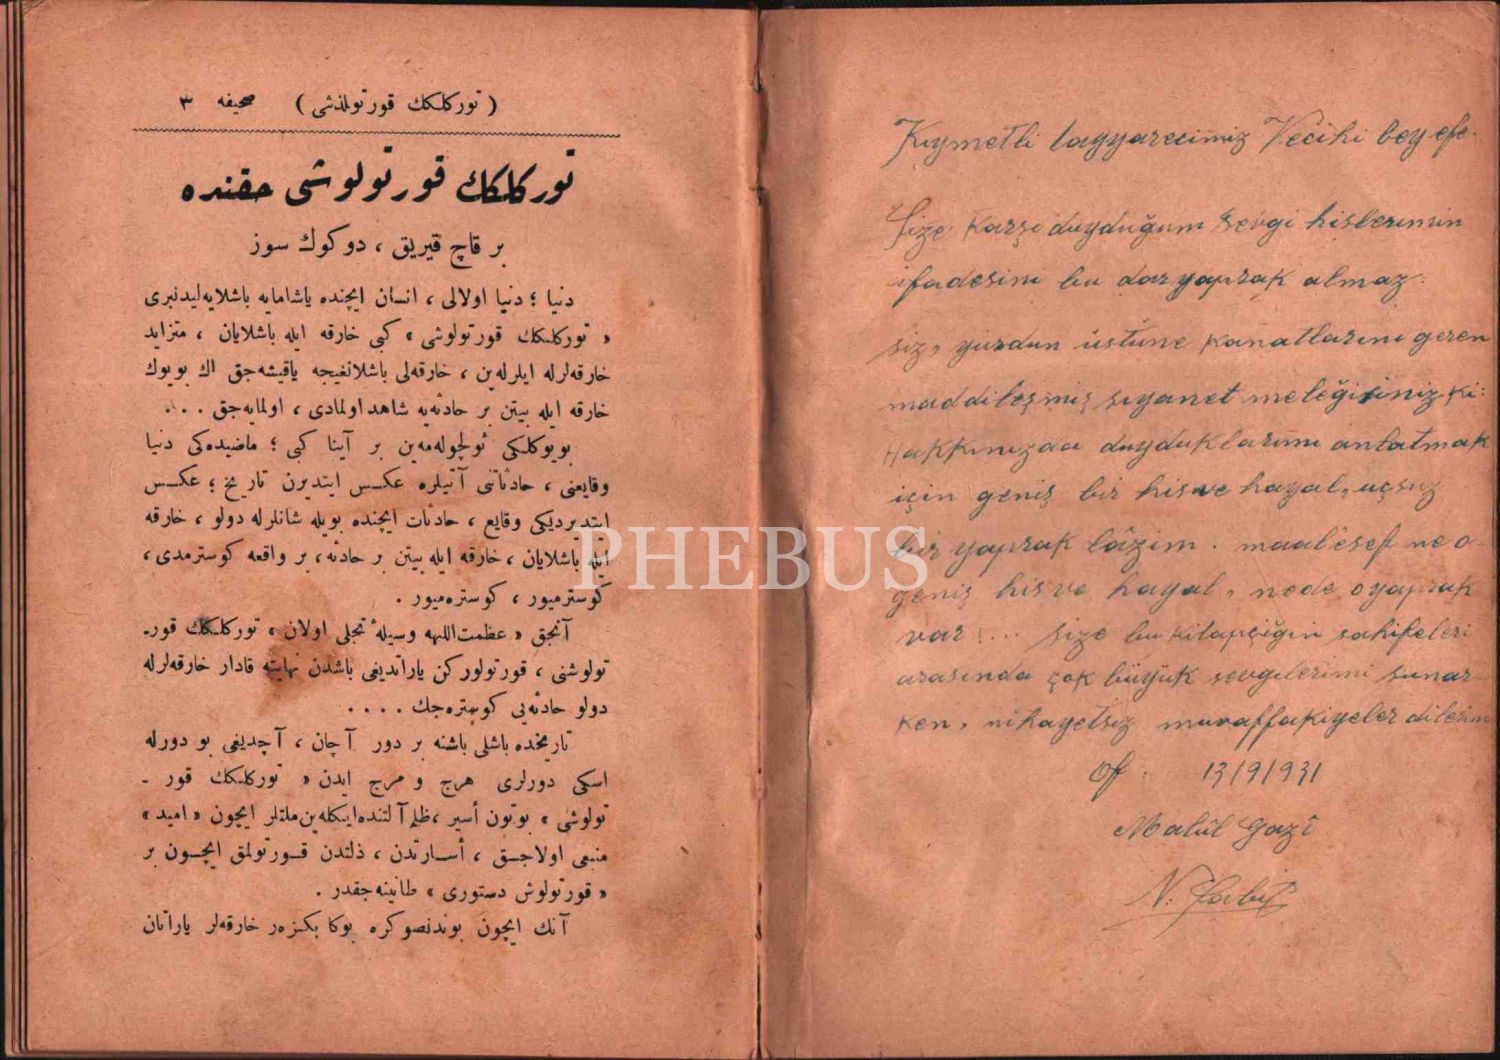 ( توركلكك قورتولدشی ) صحيفه ٣
توركلكك قورتولوشی حقنده
بر قاچ قيريق ، دوكوك سوز
دنيا ؛ دنيا اولالی ، انسان ايچنده ياشامايه باشلايه‌ليدنبری
« توركلكك قورتولوشی » كبی خارقه ايله باشلايان ، متزايد
خارقه‌لرله ايلرله‌ين ، خارقه‌لی باشلانغيجه ياقيشه‌جق اك بويوك
خارقه ايله بيتن بر حادثه‌يه شاهد اولمادی ، اولمايه‌جق . . .
بويوكلكی ئولچوله‌مه‌ين بر آينا كبی ؛ ماضيده‌كی دنيا
وقايعنی ، حادثاتنی آتيلره عكس ايتديرن تاريخ ؛ عكس
ايتديرديكی وقايع ، حادثات ايچنده بويله شانلرله دولو ، خارقه
ايله باشلايان ، خارقه ايله بيتن بر حادثه ، بر واقعه كوسترمدی ،
كوسترميور ، كوستره‌ميور .
آنجق « عظمت‌اللهه وسيلهٔ تجلی اولان ، توركلكك قور-
تولوشنی ، قورتولور كن ياراتديغی باشدن نهايته قادار خارقه‌لرله
دولو حادثه‌يی كوستره‌جك . . . .
تاريخده باشلی باشنه بر دور آچان ، آچديغی بو دورله
اسكی دورلری هرج و مرج ايدن « توركلكك قور -
تولوشی » بوتون أسير ، ظلم آلتنده ايكله‌ين ملتلر ايچون « اميد »
منبعی اولاجق ، أسارتدن ، ذلتدن قورتولمق ايچون بر
« قورتولوش دستوری » طانينه‌جقدر .
آنك ايچون بوندنصوكره بوكا بكزه‌ر خارقه‌لر ياراتان
Kıymetli tayyarecimiz Vecihi bey efe.
Size karşı duyduğum sevgi hislerimin
ifadesini bu dar yaprak almaz.
siz, yurdun üstüne kanatlarını geren
maddileşmiş sıyanet meleğisiniz ki:
Hakkınızda duyduklarımı anlatmak
için geniş bir his ve hayal, uçsuz
bir yaprak lâzım. maal'esef ne o
geniş his ve hayal, nede o yaprak
var!... Size bu kitapçiğin sahifeleri
arasında çok büyük sevgilerimi sunar-
ken, nihayetsiz muvaffakiyeler dilerim
Of 13/9/931
Malûl Gazî
N. Sabit
PHEBUS